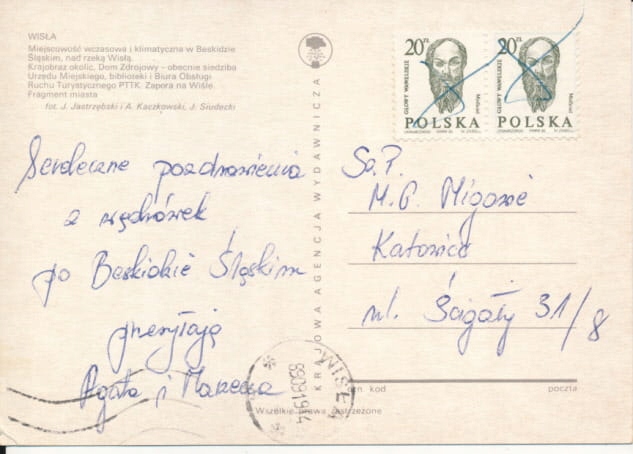 WISŁA
Miejscowość wczasowa i klimatyczna w Beskidzie
Śląskim, nad rzeką Wisłą.
Krajobraz okolic, Dom Zdrojowy - obecnie siedziba
Urzędu Miejskiego, biblioteki i Biura Obsługi
Ruchu Turystycznego PTTK. Zapora na Wiśle.
Fragment miasta
fot. J. Jastrzębski i A. Kaczkowski, J. Siudecki
Serdeczne pozdrowienia
z wędrówek
po Beskidzie Śląskim
przesyłają
Agata i Marzena
KRAJOWA AGENCJA WYDAWNICZA
20 ZŁ
GŁOWY WAWELSKIE
POLSKA
20 ZŁ
GŁOWY WAWELSKIE
POLSKA
Sz. P.
M. G.
Katowice
ul. Ścigały 31/8
WISŁA
kod
poczta
Wszelkie prawa zastrzeżone